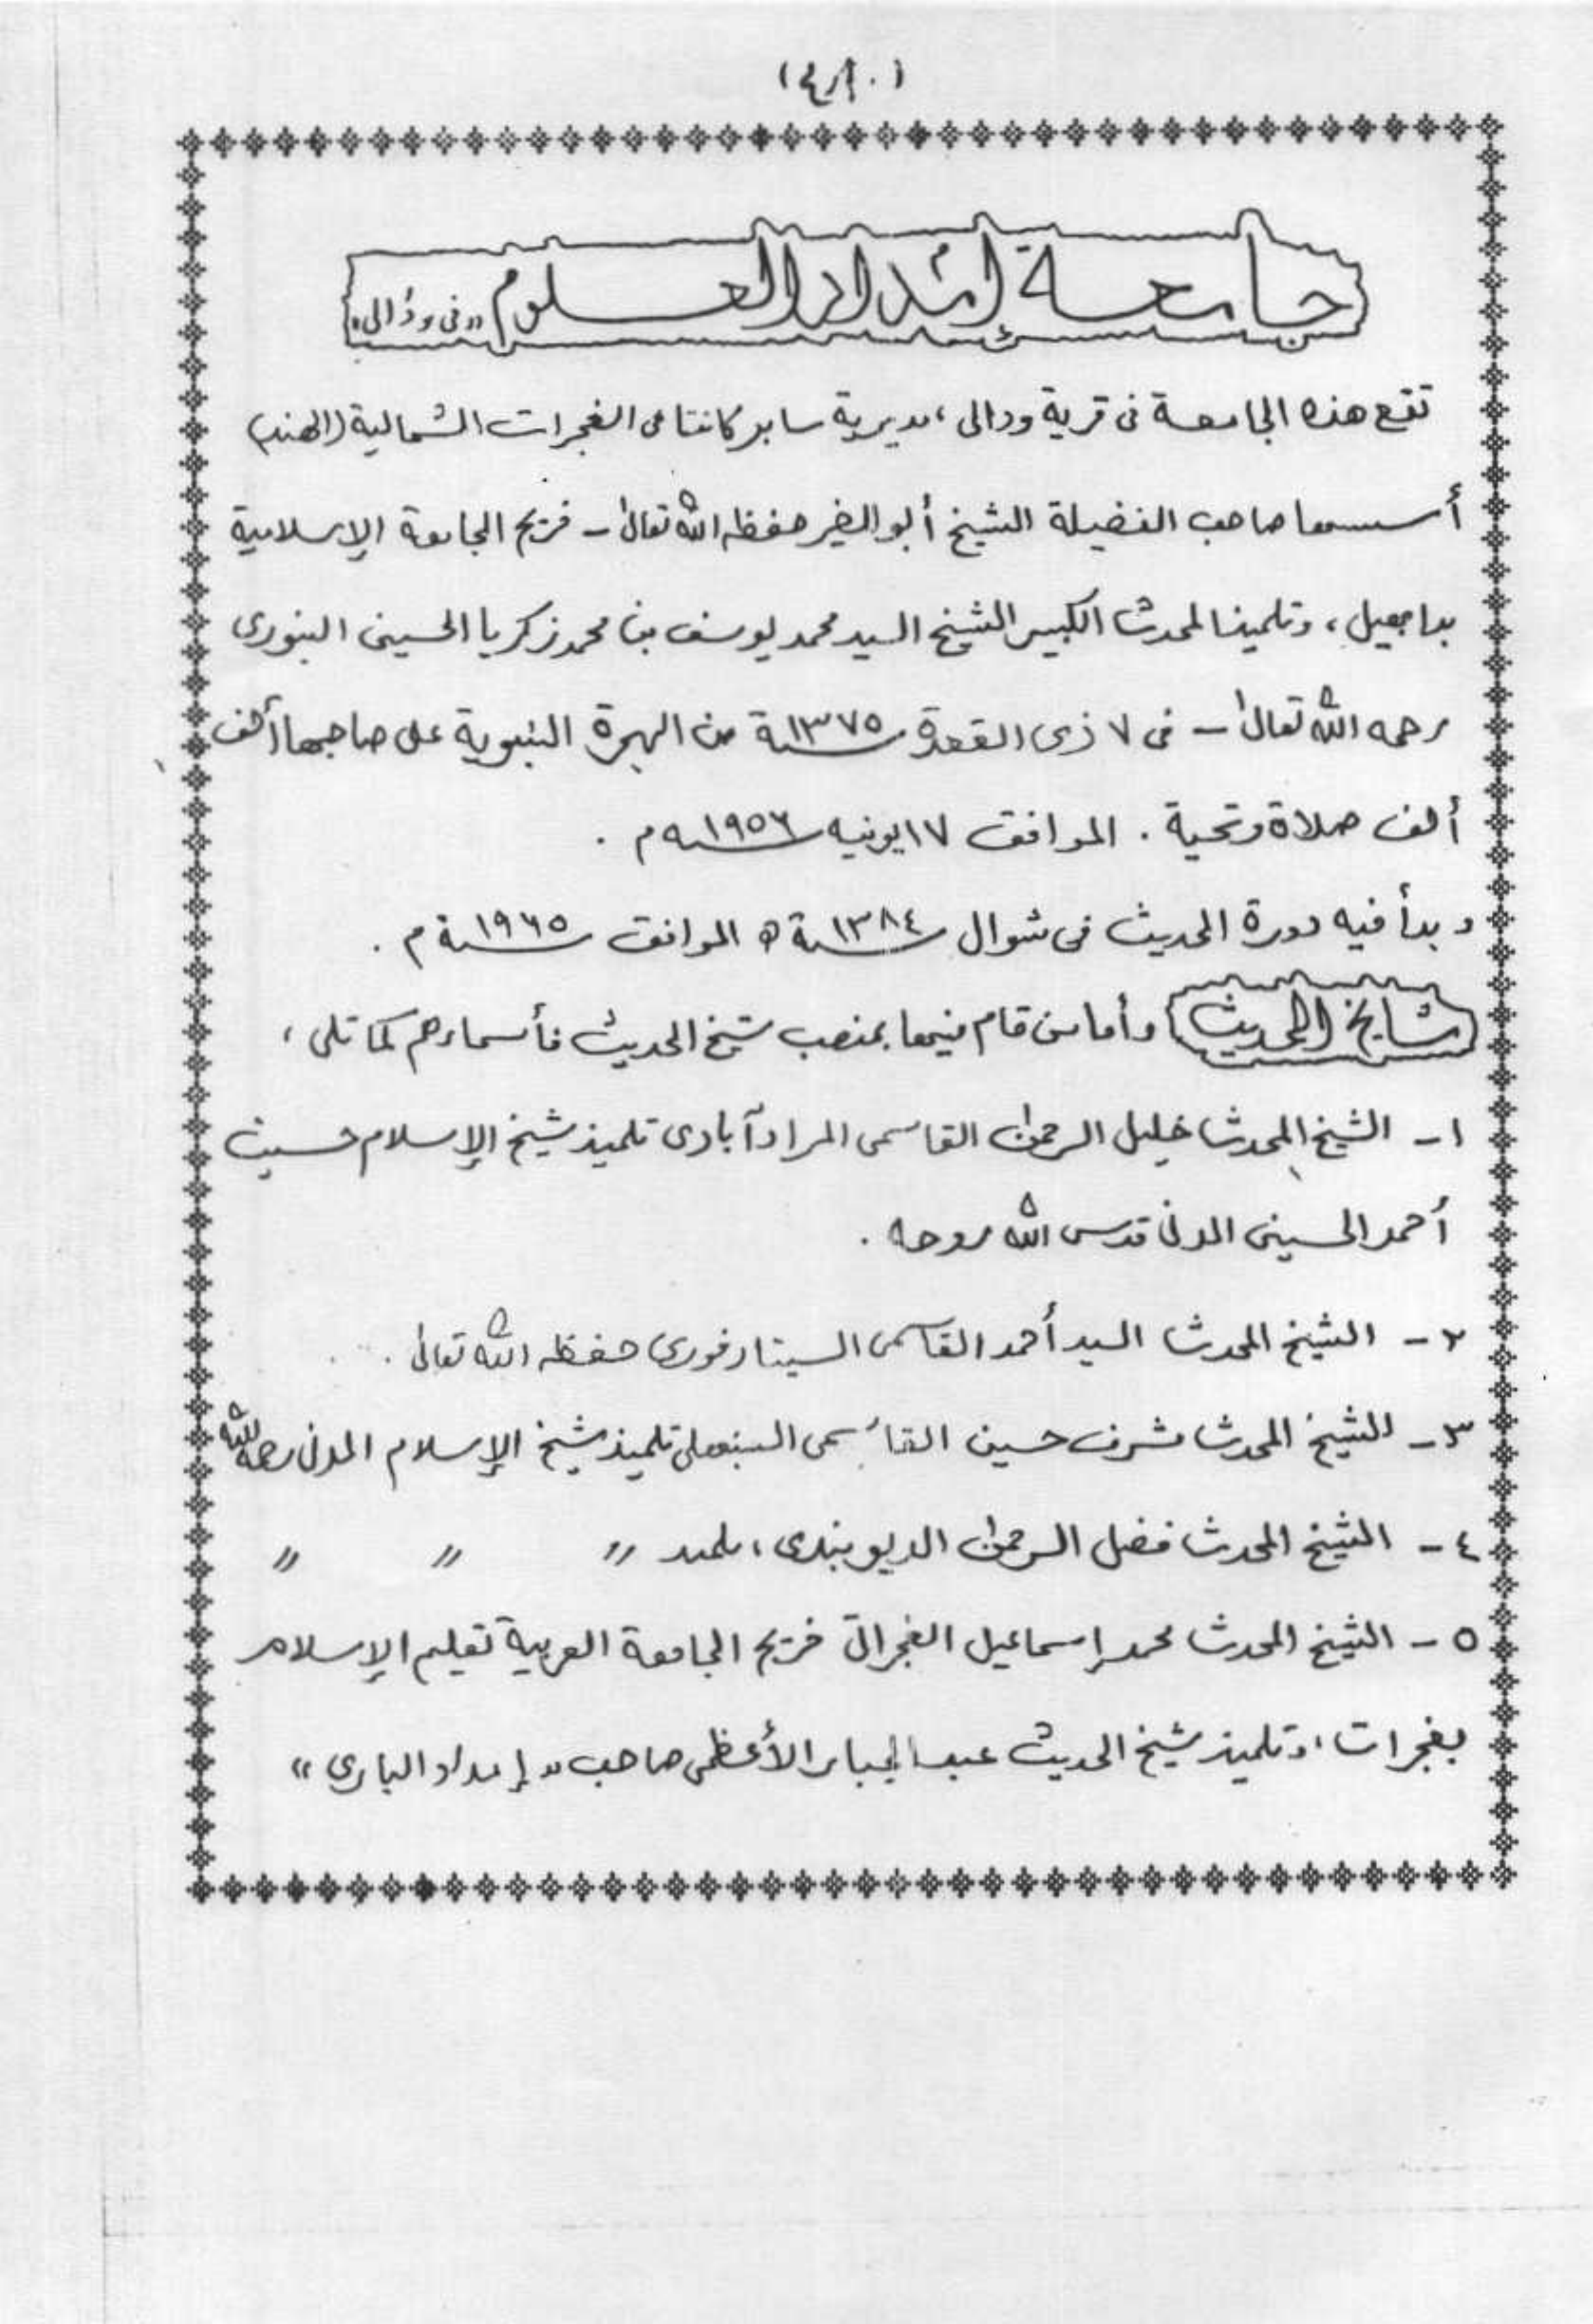 جامعة إمداد العلوم "فى وڈالى"
تقع هذه الجامعة فى قرية ودالى، مديرية سابر كانتا فى الغجرات الشمالية (الهند)
أسسها صاحب الفضيلة الشيخ أبو الخير حفظه الله تعالىٰ - خريج الجامعة الإسلامية
بدابهيل، وتلميذ المحدث الكبير الشيخ السيد محمد يوسف بن محمد زكريا الحسينى البنورى
رحمه الله تعالىٰ - فى ٧ ذى القعدة ١٣٧٥سنة من الهجرة النبوية على صاحبها ألف
ألف صلاة وتحية . الموافق ١٧ يونيه ١٩٥٦سنه م .
وبدأ فيه دورة الحديث فى شوال ١٣٨٤سنة ھ الموافق ١٩٦٥سنة م .
مشايخ الحديث وأما من قام فيها بمنصب شيخ الحديث فأسماءهم كما تلى ،
١- الشيخ المحدث خليل الرحمٰن القاسمى المرادآبادى تلميذ شيخ الإسلام حسين
أحمد الحسينى المدنى قدس الله روحه .
٢- الشيخ المحدث السيد أحمد القاسمى السيتارفورى حفظه الله تعالىٰ .
٣- الشيخ المحدث مشرف حسين القاسمى السنبهلى تلميذ شيخ الإسلام المدنى رحمه الله
٤- الشيخ المحدث فضل الرحمٰن الديوبندى، تلميذ " " "
٥- الشيخ المحدث محمد إسماعيل الغجراتى خريج الجامعة العربية تعليم الإسلام
بغجرات، وتلميذ شيخ الحديث عبد الجبار الأعظمى صاحب "إمداد البارى"